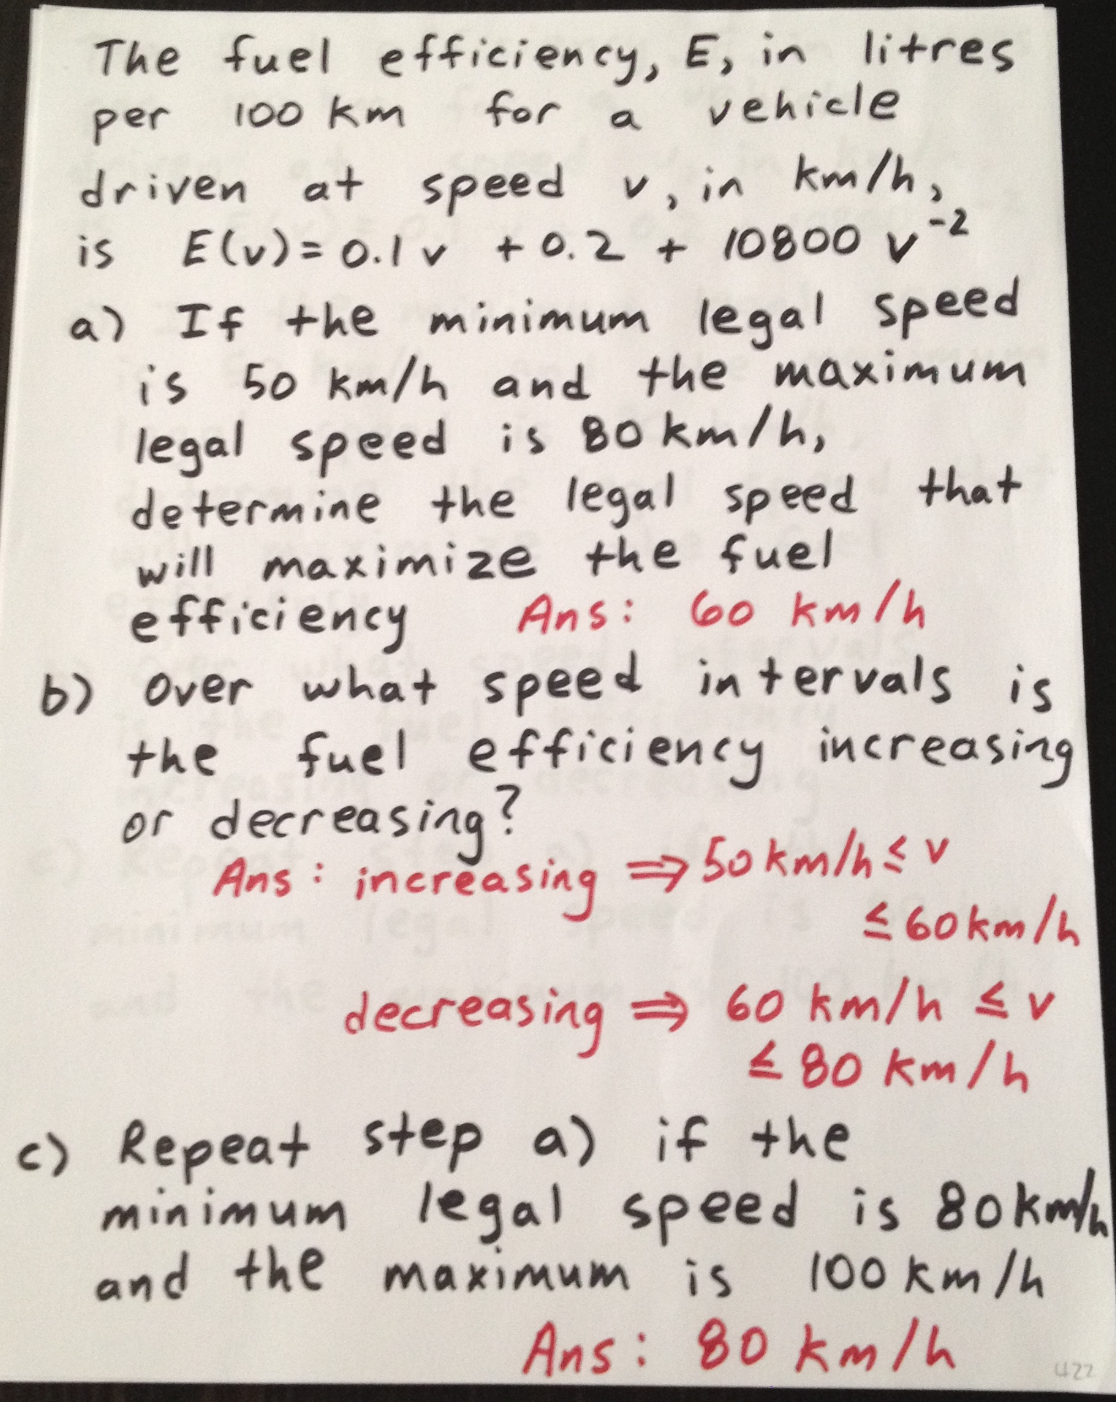 The fuel efficiency, E, in litres
per 100 km for a vehicle
driven at speed v, in km/h,
is E(v) = 0.1v + 0.2 + 10800 v⁻²
a) If the minimum legal speed
is 50 km/h and the maximum
legal speed is 80 km/h,
determine the legal speed that
will maximize the fuel
efficiency Ans: 60 km/h
b) Over what speed intervals is
the fuel efficiency increasing
or decreasing?
Ans: increasing ⇒ 50 km/h ≤ v
≤ 60 km/h
decreasing ⇒ 60 km/h ≤ v
≤ 80 km/h
c) Repeat step a) if the
minimum legal speed is 80 km/h
and the maximum is 100 km/h
Ans: 80 km/h
422